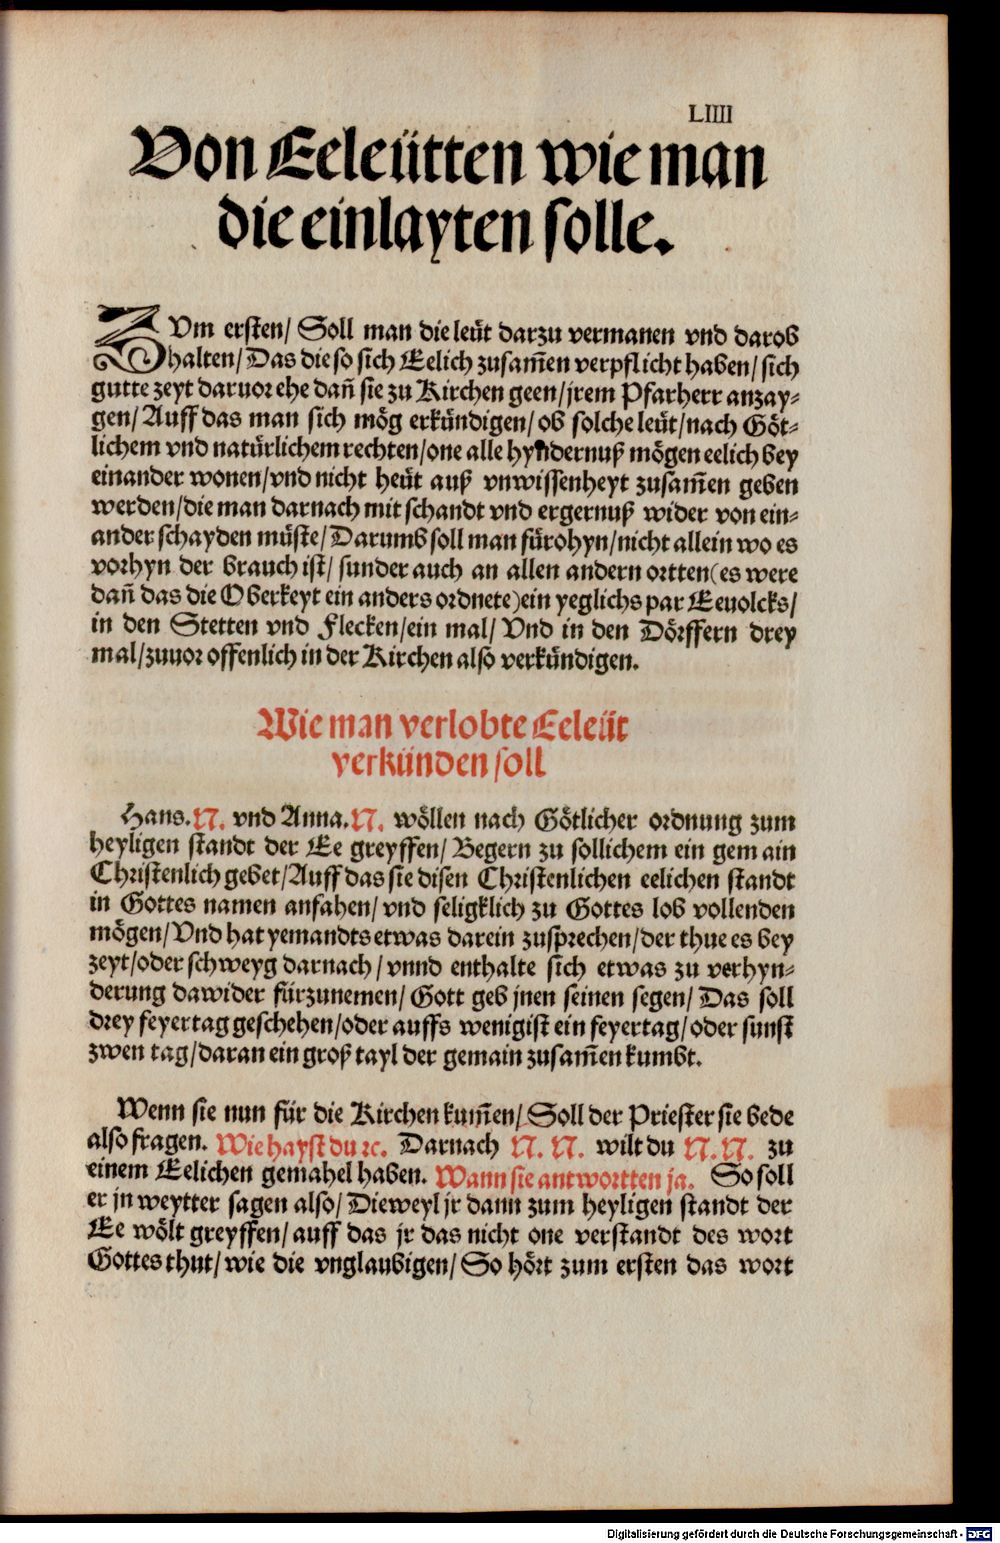 LIIII
Von Eeleütten wie man
die einlayten solle.
ZVm ersten/ Soll man die leüt darzu vermanen vnd darob
halten/ Das die so sich Eelich zusam̃en verpflicht haben/ sich
gutte zeyt daruor ehe dañ sie zu Kirchen geen/ jrem Pfarherr anzay-
gen/ Auff das man sich mög erkündigen/ ob solche leüt/ nach Göt-
lichem vnd natürlichem rechten/ one alle hyndernuß mögen eelich bey
einander wonen/ vnd nicht heüt auß vnwissenheyt zusam̃en geben
werden/ die man darnach mit schandt vnd ergernuß wider von ein-
ander schayden müste/ Darumb soll man fürohyn/ nicht allein wo es
vorhyn der brauch ist/ sunder auch an allen andern ortten (es were
dañ das die Oberkeyt ein anders ordnete) ein yeglichs par Eeuolcks/
in den Stetten vnd Flecken/ ein mal/ Vnd in den Dörffern drey
mal/ zuuor offenlich in der Kirchen also verkündigen.
Wie man verlobte Eeleüt
verkünden soll
Hans. N. vnd Anna. N. wöllen nach Götlicher ordnung zum
heyligen standt der Ee greyffen/ Begern zu sollichem ein gemain
Christenlich gebet/ Auff das sie disen Christenlichen eelichen standt
in Gottes namen anfahen/ vnd seligklich zu Gottes lob vollenden
mögen/ Vnd hat yemandts etwas darein zusprechen/ der thue es bey
zeyt/ oder schweyg darnach/ vnnd enthalte sich etwas zu verhyn-
derung dawider fürzunemen/ Gott geb jnen seinen segen/ Das soll
drey feyertag geschehen/ oder auffs wenigist ein feyertag/ oder sunst
zwen tag/ daran ein groß tayl der gemain zusam̃en kumbt.
Wenn sie nun für die Kirchen kum̃en/ Soll der Priester sie bede
also fragen. Wie hayst du ꝛc. Darnach N. N. wilt du N. N. zu
einem Eelichen gemahel haben. Wann sie antwortten ja. So soll
er jn weytter sagen also/ Dieweyl jr dann zum heyligen standt der
Ee wölt greyffen/ auff das jr das nicht one verstandt des wort
Gottes thut/ wie die vnglaubigen/ So hört zum ersten das wort
Digitalisierung gefördert durch die Deutsche Forschungsgemeinschaft - DFG